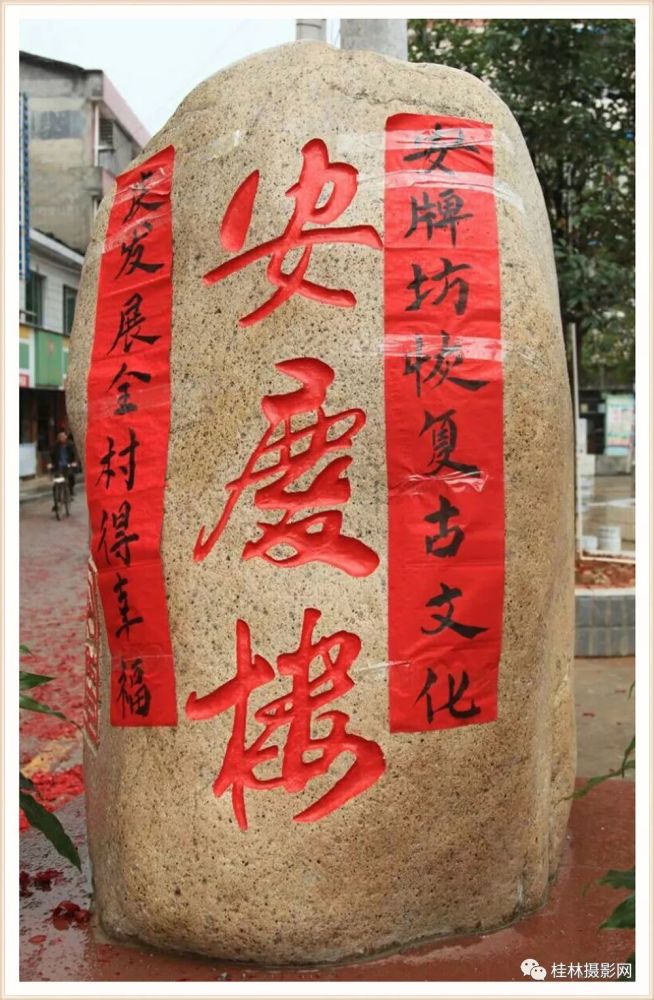 安牌坊恢复古文化
安慶楼
庆发展全村得幸福
桂林摄影网